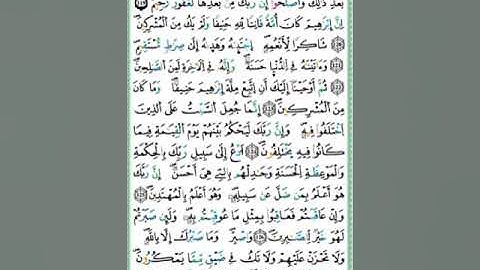 بَعْدِ ذَٰلِكَ وَأَصْلَحُوا إِنَّ رَبَّكَ مِنْ بَعْدِهَا لَغَفُورٌ رَحِيمٌ ﴿١١٩﴾
إِنَّ إِبْرَاهِيمَ كَانَ أُمَّةً قَانِتًا لِلَّهِ حَنِيفًا وَلَمْ يَكُ مِنَ الْمُشْرِكِينَ ﴿١٢٠﴾
شَاكِرًا لِأَنْعُمِهِ اجْتَبَاهُ وَهَدَاهُ إِلَىٰ صِرَاطٍ مُسْتَقِيمٍ ﴿١٢١﴾
وَآتَيْنَاهُ فِي الدُّنْيَا حَسَنَةً وَإِنَّهُ فِي الْآخِرَةِ لَمِنَ الصَّالِحِينَ ﴿١٢٢﴾
ثُمَّ أَوْحَيْنَا إِلَيْكَ أَنِ اتَّبِعْ مِلَّةَ إِبْرَاهِيمَ حَنِيفًا وَمَا كَانَ
مِنَ الْمُشْرِكِينَ ﴿١٢٣﴾ إِنَّمَا جُعِلَ السَّبْتُ عَلَى الَّذِينَ
اخْتَلَفُوا فِيهِ وَإِنَّ رَبَّكَ لَيَحْكُمُ بَيْنَهُمْ يَوْمَ الْقِيَامَةِ فِيمَا
كَانُوا فِيهِ يَخْتَلِفُونَ ﴿١٢٤﴾ ادْعُ إِلَىٰ سَبِيلِ رَبِّكَ بِالْحِكْمَةِ
وَالْمَوْعِظَةِ الْحَسَنَةِ وَجَادِلْهُمْ بِالَّتِي هِيَ أَحْسَنُ إِنَّ رَبَّكَ
هُوَ أَعْلَمُ بِمَنْ ضَلَّ عَنْ سَبِيلِهِ وَهُوَ أَعْلَمُ بِالْمُهْتَدِينَ ﴿١٢٥﴾
وَإِنْ عَاقَبْتُمْ فَعَاقِبُوا بِمِثْلِ مَا عُوقِبْتُمْ بِهِ وَلَئِنْ صَبَرْتُمْ
لَهُوَ خَيْرٌ لِلصَّابِرِينَ ﴿١٢٦﴾ وَاصْبِرْ وَمَا صَبْرُكَ إِلَّا بِاللَّهِ
وَلَا تَحْزَنْ عَلَيْهِمْ وَلَا تَكُ فِي ضَيْقٍ مِمَّا يَمْكُرُونَ ﴿١٢٧﴾